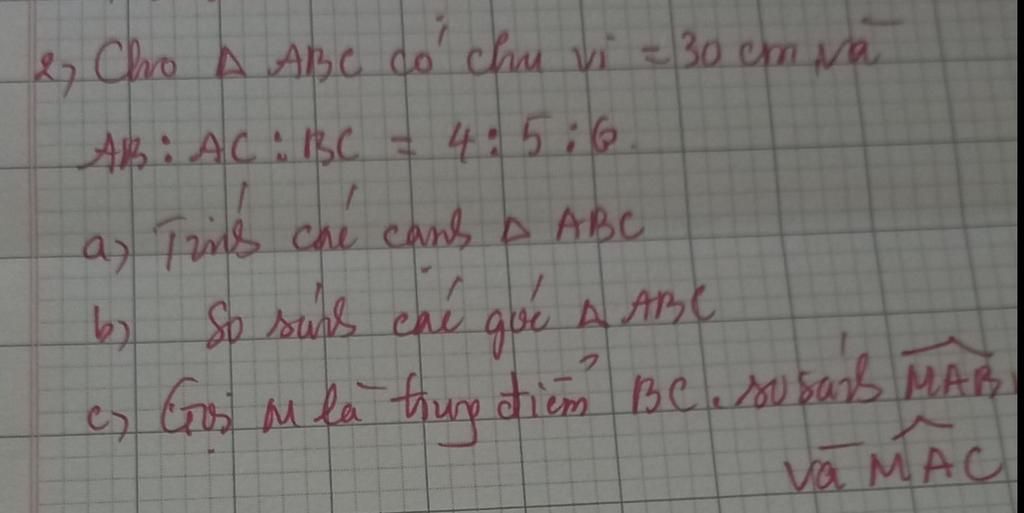 2, Cho Δ ABC có chu vi = 30 cm và
AB : AC : BC = 4 : 5 : 6.
a, Tính các cạnh Δ ABC
b, So sánh các góc Δ ABC
c, Gọi M là trung điểm BC. so sánh MAB
và MAC